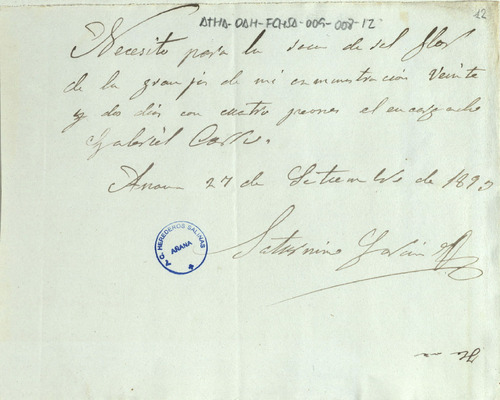 ATHA-DAH-FCHSA-009-008-12
12
Necesito para la saca de sal flor
de la granja de mi administración veinte
y dos dias con cuatro peones el encargado
Gabriel
Anana 27 de Setiembre de 189
Saturnino
J.C. HEREDEROS SALINAS
AÑANA